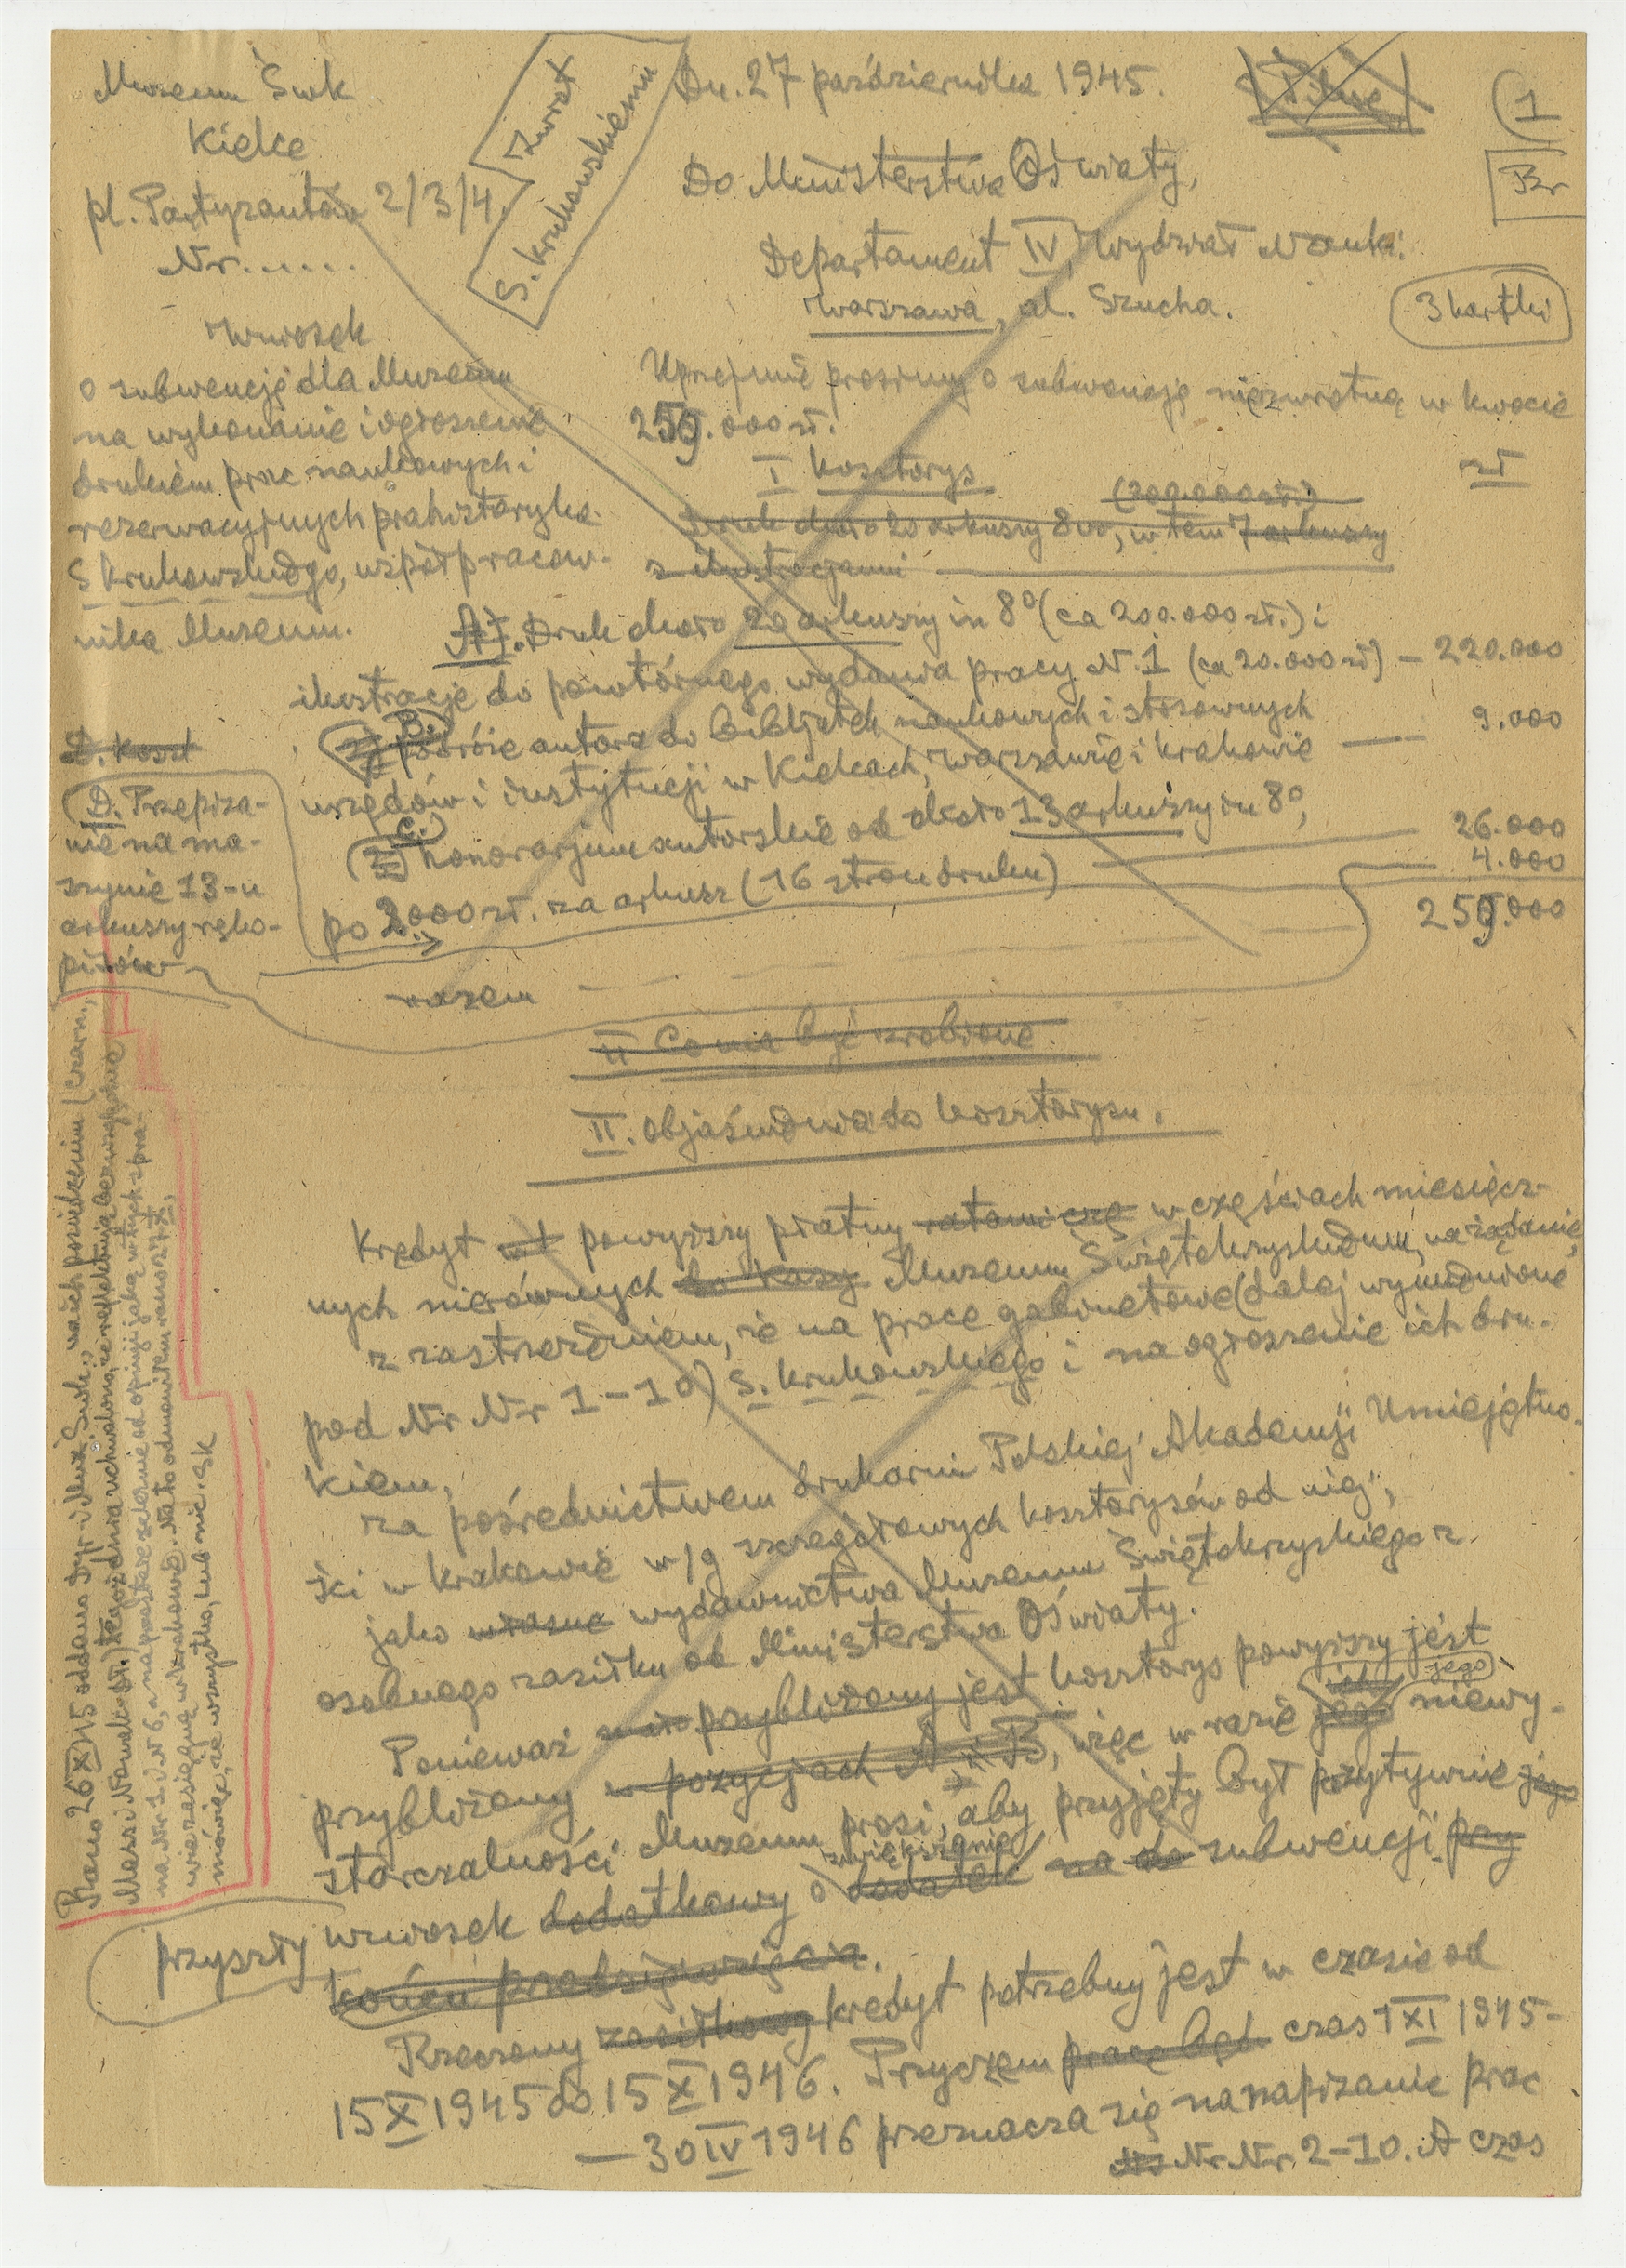 Muzeum Świk
Kielce
pl. Partyzantów 2/3/4
Nr......
Zwrot
S. Krukowskiemu
Dn. 27 października 1945.
Pilne
1
Br
Do Ministerstwa Oświaty,
Departament IV, Wydział Nauki.
Warszawa, al. Szucha.
3 kartki
Wniosek
o subwencję dla Muzeum
na wykonanie i ogłoszenie
drukiem prac naukowych i
rezerwacyjnych prahistoryka
S Krukowskiego, współpracow-
nika Muzeum.
Uprzejmie prosimy o subwencję niezwrotną w kwocie
259.000 zł.
I Kosztorys
zł
(200.000 zł.)
Druk około 20 arkuszy 8vo, w tem 7 arkuszy
z ilustracjami
A). Druk około 20 arkuszy in 8° (ca 200.000 zł.) i
ilustracje do powtórnego wydania pracy N. 1 (ca 20.000 zł) — 220.000
B. podróże autora do bibljotek naukowych i stosownych
urzędów i instytucji w Kielcach, Warszawie i Krakowie — 9.000
C. honorarjum autorskie od około 13 arkuszy in 8°,
po 2000 zł. za arkusz (16 stron druku) 26.000
4.000
259.000
D. Koszt
D. Przepisa-
nie na ma-
szynie 13-u
arkuszy ręko-
pisów
razem
II Co ma być zrobione.
II. Objaśnienia do kosztorysu.
Kredyt powyższy płatny ratami w częściach miesięcz-
nych nierównych do kasy Muzeum Świętokrzyskiemu, na żądanie,
z zastrzeżeniem, że na prace gabinetowe (dalej wymienione
pod Nr Nr 1-10) S. Krukowskiego i na ogłoszenie ich dru-
kiem,
za pośrednictwem drukarni Polskiej Akademji Umiejętno-
ści w Krakowie w/g szczegółowych kosztorysów od niej,
jako własne wydawnictwa Muzeum Świętokrzyskiego z
osobnego zasiłku od Ministerstwa Oświaty.
Ponieważ przybliżony jest kosztorys powyższy jest
ich jego
przybliżony w pozycjach A i B, więc w razie jego niewy-
starczalności Muzeum prosi, aby przyjęty był pozytywnie jego
zwiększenie
przyszły wniosek dodatkowy o dodatek na do subwencji przy
końcu przedsięwzięcia.
Rzeczony zasiłkowy kredyt potrzebny jest w czasie od
15 X 1945 do 15 X 1946. Przyczem prace będ czas 1 XI 1945-
— 30 IV 1946 przeznacza się na napisanie prac
Nr. Nr. 2-10. A czas
Rano 26 X 45 oddano Dyr-i Muz. Świk., na ich posiedzeniu (Czarn.,
Mass i Nawak St.) tegoż dnia uchwalono, że reflektują bezwzględnie
na Nr 1 i N 6, a na pozostałe zależnie od opinji jaką w tych spra-
wie zasięgnę w Krakowie. Na to odmówiłem rano 27 X,
mówiąc, że wszystko, lub nic. SK